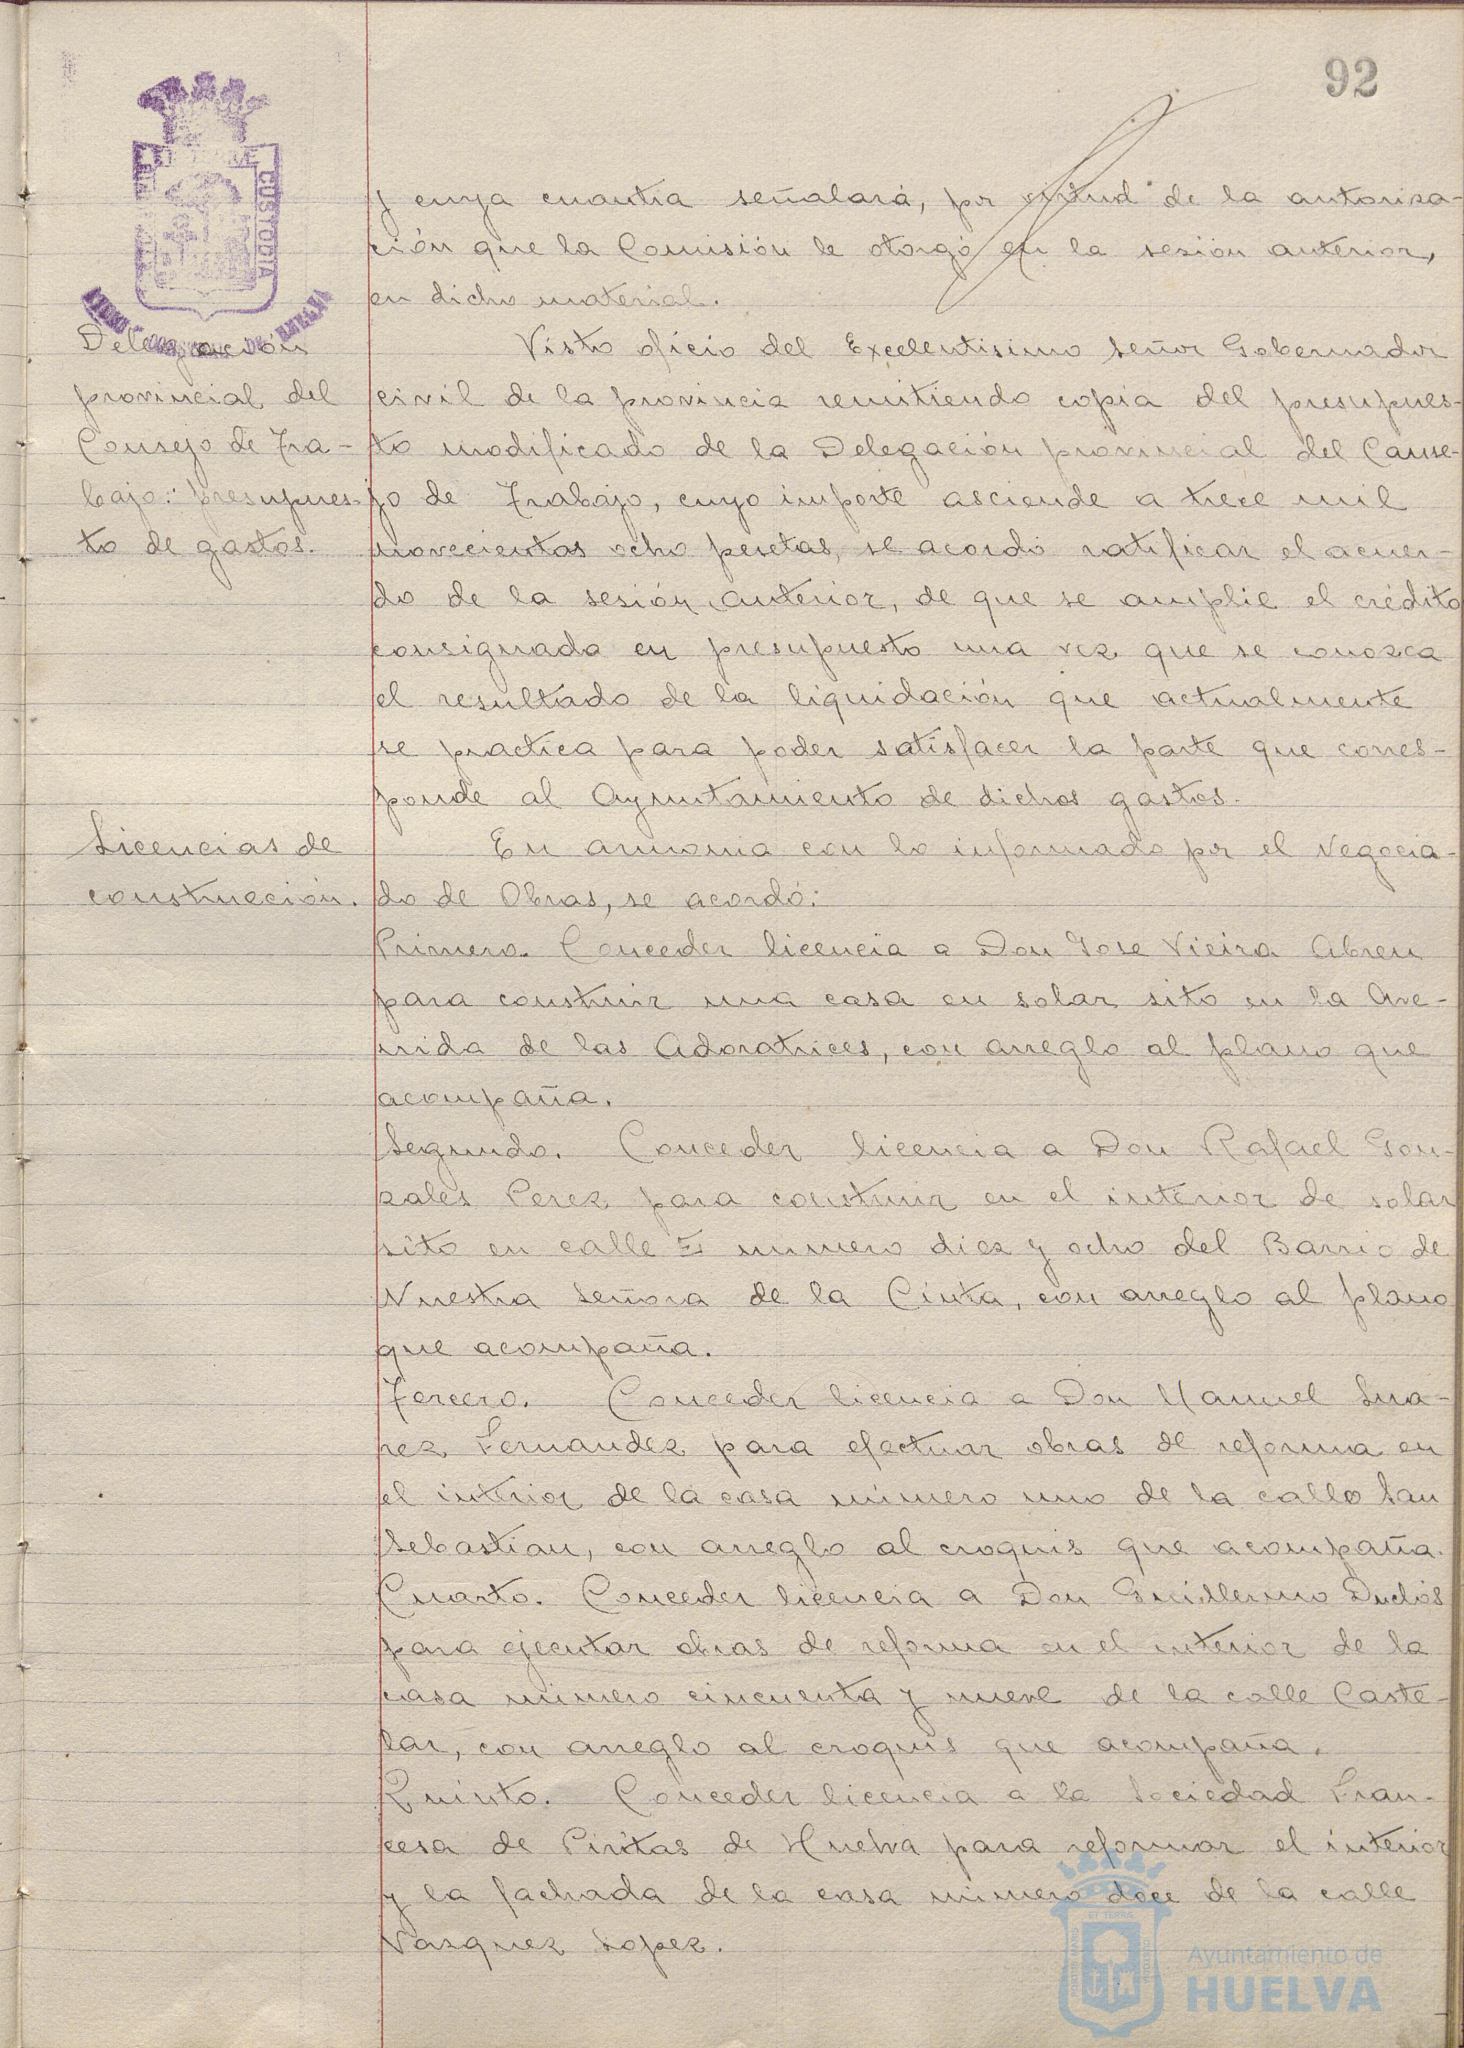 92
CUSTODIA
y cuya cuantia señalará, por virtud de la autoriza-
ción que la Comisión le otorgó en la sesión anterior,
en dicho material.
Delegación
provincial del
Consejo de Tra-
bajo: presupues-
to de gastos.
Visto oficio del Excelentisimo Señor Gobernador
civil de la provincia remitiendo copia del presupues-
to modificado de la Delegación provincial del Conse-
jo de Trabajo, cuyo importe asciende a trece mil
novecientas ocho pesetas, se acordó ratificar el acuer-
do de la sesión anterior, de que se amplie el crédito
consignado en presupuesto una vez que se conozca
el resultado de la liquidación que actualmente
se practica para poder satisfacer la parte que corres-
ponde al Ayuntamiento de dichos gastos.
Licencias de
construcción.
En armonia con lo informado por el Negocia-
do de Obras, se acordó:
Primero. Conceder licencia a Don Jose Vieira Abreu
para construir una casa en solar sito en la Ave-
nida de las Adoratrices, con arreglo al plano que
acompaña.
Segundo. Conceder licencia a Don Rafael Gon-
zales Perez para construir en el interior de solar
sito en calle E numero diez y ocho del Barrio de
Nuestra Señora de la Cinta, con arreglo al plano
que acompaña.
Tercero. Conceder licencia a Don Manuel Sua-
rez Fernandez para efectuar obras de reforma en
el interior de la casa número uno de la calle San
Sebastian, con arreglo al croquis que acompaña.
Cuarto. Conceder licencia a Don Guillermo Duclós
para ejecutar obras de reforma en el interior de la
casa número cincuenta y nueve de la calle Caste-
lar, con arreglo al croquis que acompaña.
Quinto. Conceder licencia a la Sociedad Fran-
cesa de Piritas de Huelva para reformar el interior
y la fachada de la casa número doce de la calle
Vazquez Lopez.
Ayuntamiento de
HUELVA